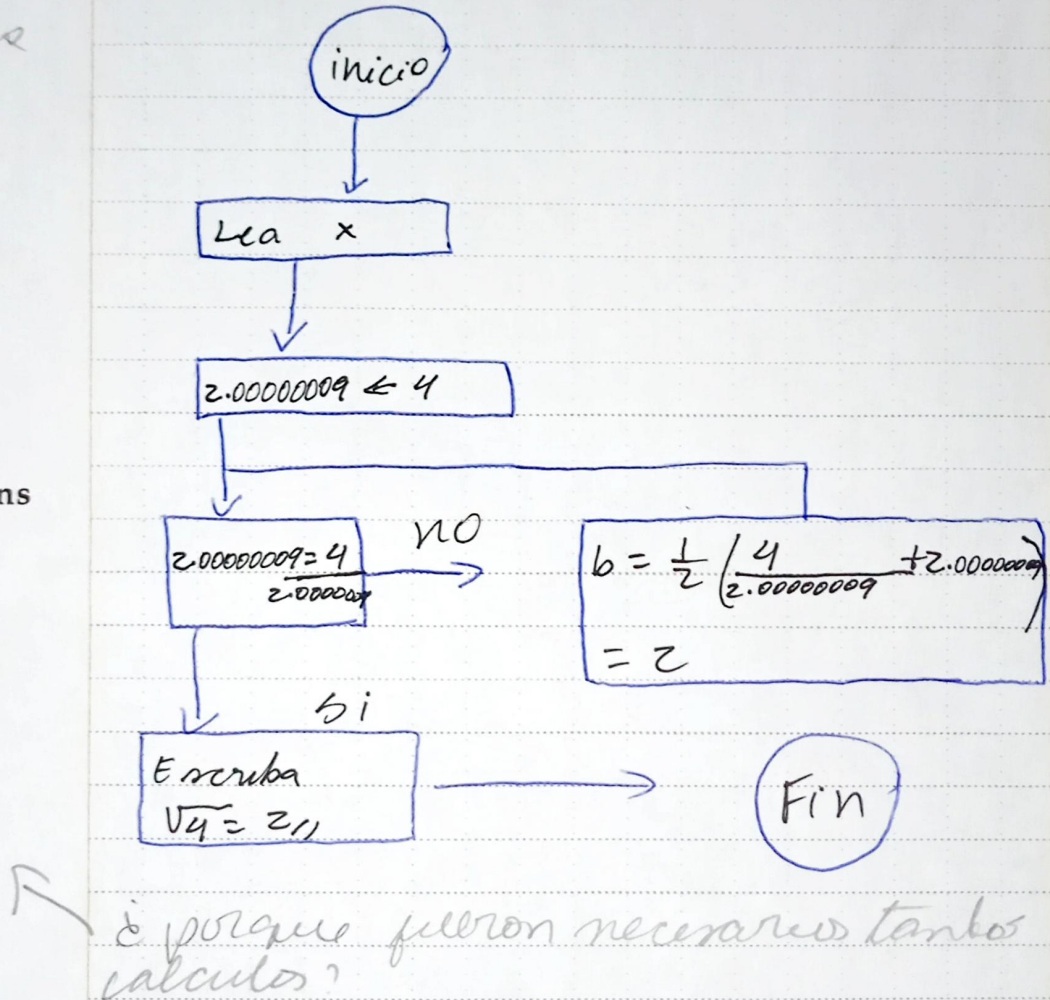 inicio
Lea x
2.00000009 ← 4
ns
no
2.00000009 = 4
2.0000009
b = 1/2 (4/2.00000009 + 2.00000009)
= 2
si
Escriba
√4 = 2,,
Fin
¿ porque fueron necesarios tantos
calculos?